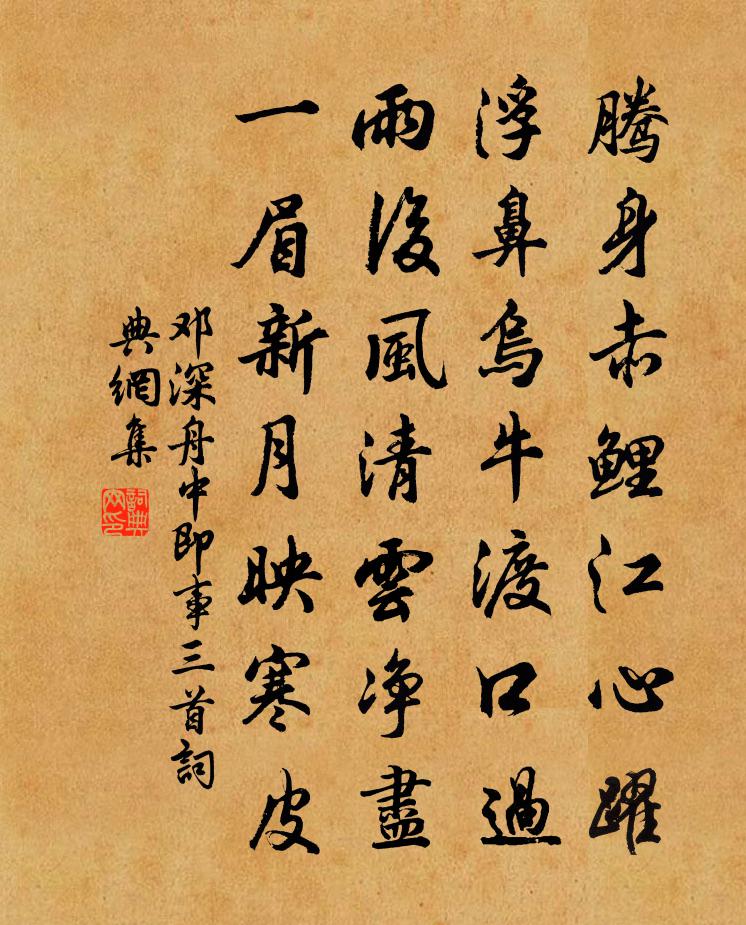 騰身赤鯉江心躍
浮鼻烏牛渡口過
雨後風清雲净盡
一眉新月映寒皮
邓深舟中即事三首詞
典網集
詞典網印